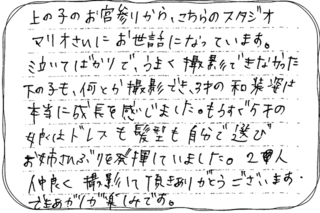 上の子のお宮参りから、こちらのスタジオ
マリオさんにお世話になっています。
泣いてばかりで、うまく撮影できなかった
下の子も、何とか撮影でき、3才の和装姿は
本当に成長を感じました。もうすぐ7才の
姉はドレスも髪型も自分で選び
お姉さんぶりを発揮していました。2人
仲良く撮影して頂きありがとうございます。
できあがりが楽しみです。